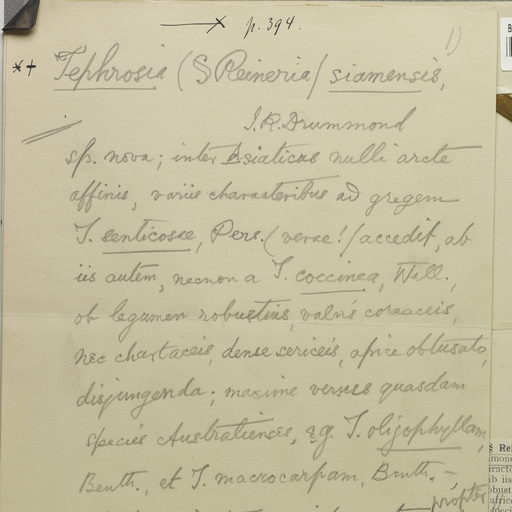 p. 394.
1)
*+ Tephrosia (§ Reineria) siamensis,
J. R. Drummond
sp. nova; inter Asiaticas nulli arcte
affinis, variis characteribus ad gregem
T. senticosæ, Pers. (veræ!) accedit, ab
iis autem, necnon a T. coccinea, Wall.,
ob legumen robustius, valvis coreaceis,
nec chartaceis, dense sericeis, apice obtusato,
disjungenda; maxime versus quasdam
species Australienses, e.g. T. oligophyllam,
Benth., et T. macrocarpam, Benth. –
propter